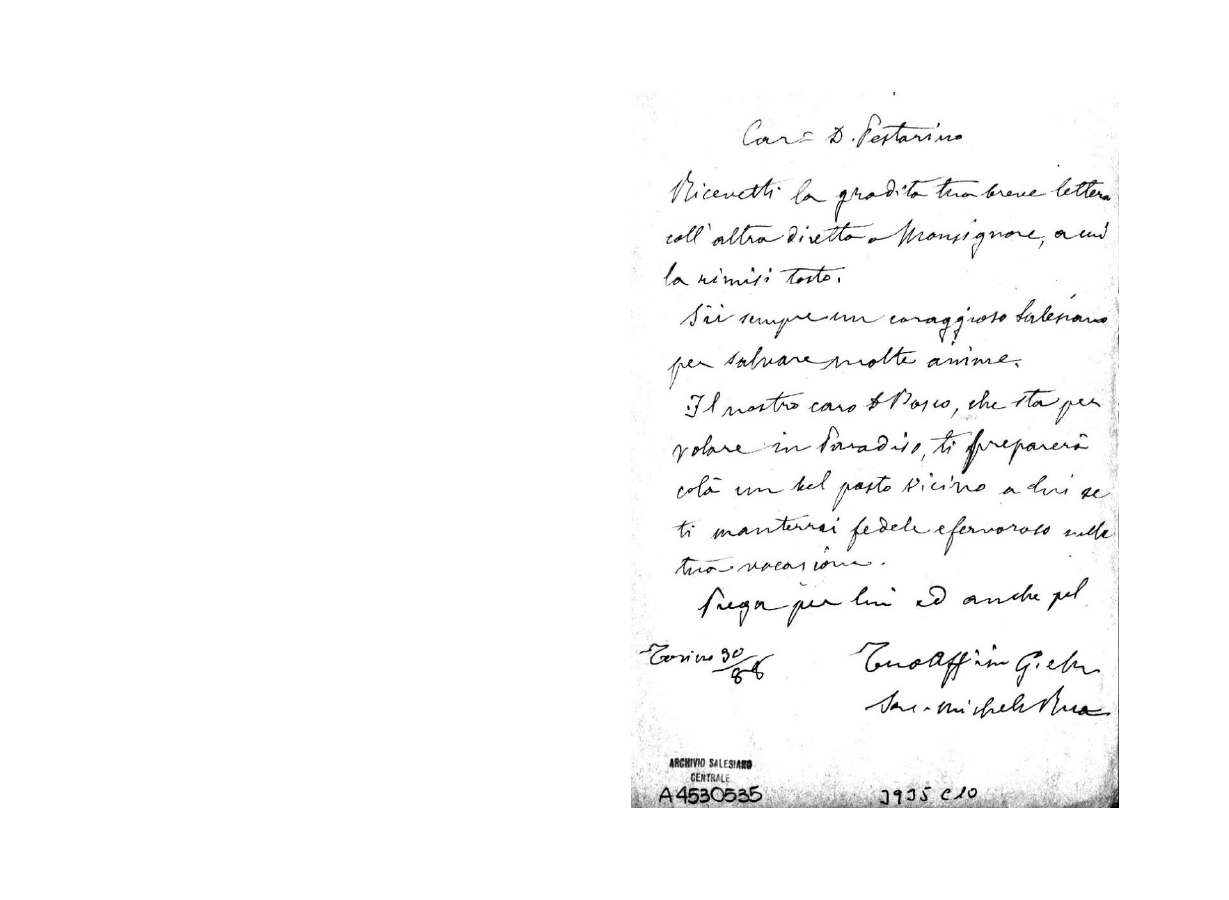 Car.o D. Pestarino
Ricevetti la gradita tua breve lettera
coll'altra diretta a Monsignore, a cui
la rimisi tosto.
Sii sempre un coraggioso Salesiano
per salvare molte anime.
Il nostro caro D Bosco, che sta per
volare in Paradiso, ti preparerà
colà un bel posto vicino a lui se
ti manterrai fedele e fervoroso nella
tua vocazione.
Prega per lui ed anche pel
Torino 30/88
Tuo Aff.mo in G. e M.
Sac. Michele Rua
ARCHIVIO SALESIANO
CENTRALE
A4530535
3935 C10